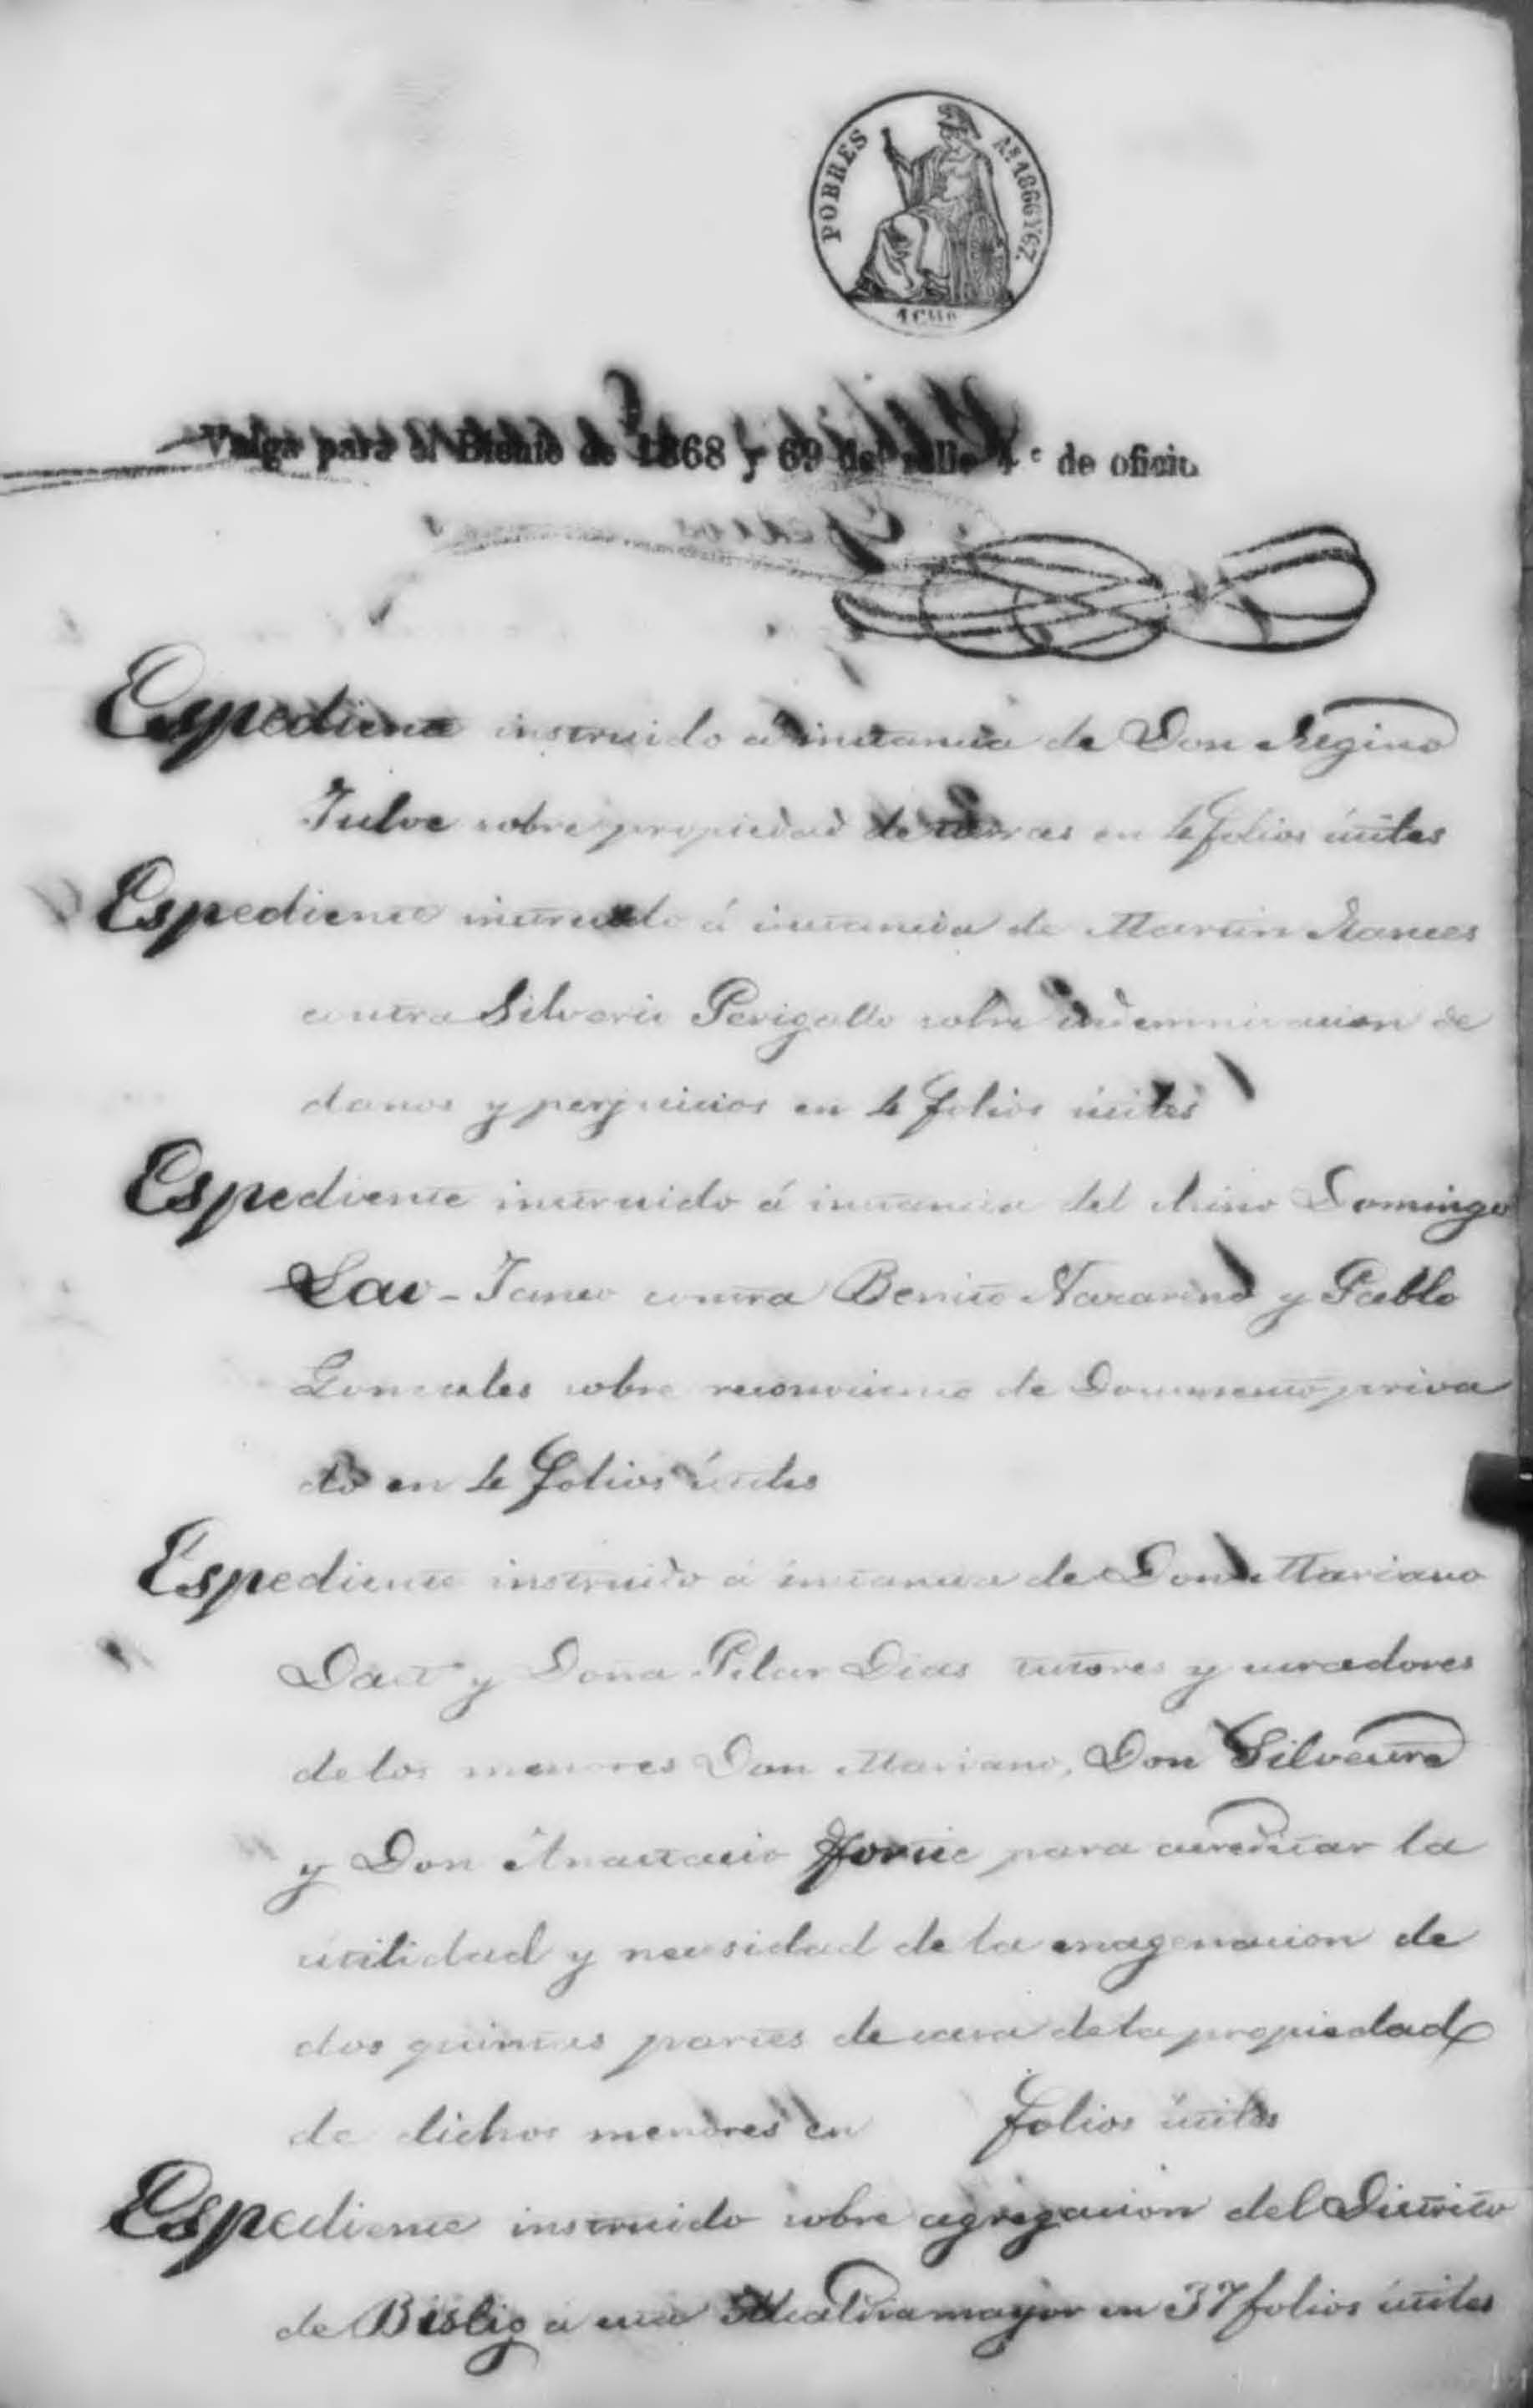 POBRES
Aˢ 1866 Y 67.
Valga para el Bienio de 1868 y 69 del sello 4.º de oficio
Espediente instruido á instancia de Don Regino
Julve sobre propiedad de tierras en 4 folios útiles
Espediente instruido á instancia de Martin
contra Silverio Perigallo sobre indemnizacion de
danos y perjuicios en 4 folios útiles
Espediente instruido á instancia del chino Domingo
Lao-Tanco contra Benito Nazareno y Pablo
Gonzales sobre de Documento priva
do en 4 folios útiles
Espediente instruido á instancia de Don Mariano
y Doña Pilar Dias tutores y curadores
de los menores Don Mariano, Don Silvestre
y Don Anastacio para acreditar la
utilidad y necesidad de la enagenacion de
dos quintas partes de casa de la propiedad
de dichos menores en folios útiles
Espediente instruido sobre agregacion del Distrito
de Bislig á esta Alcaldia mayor en 37 folios útiles